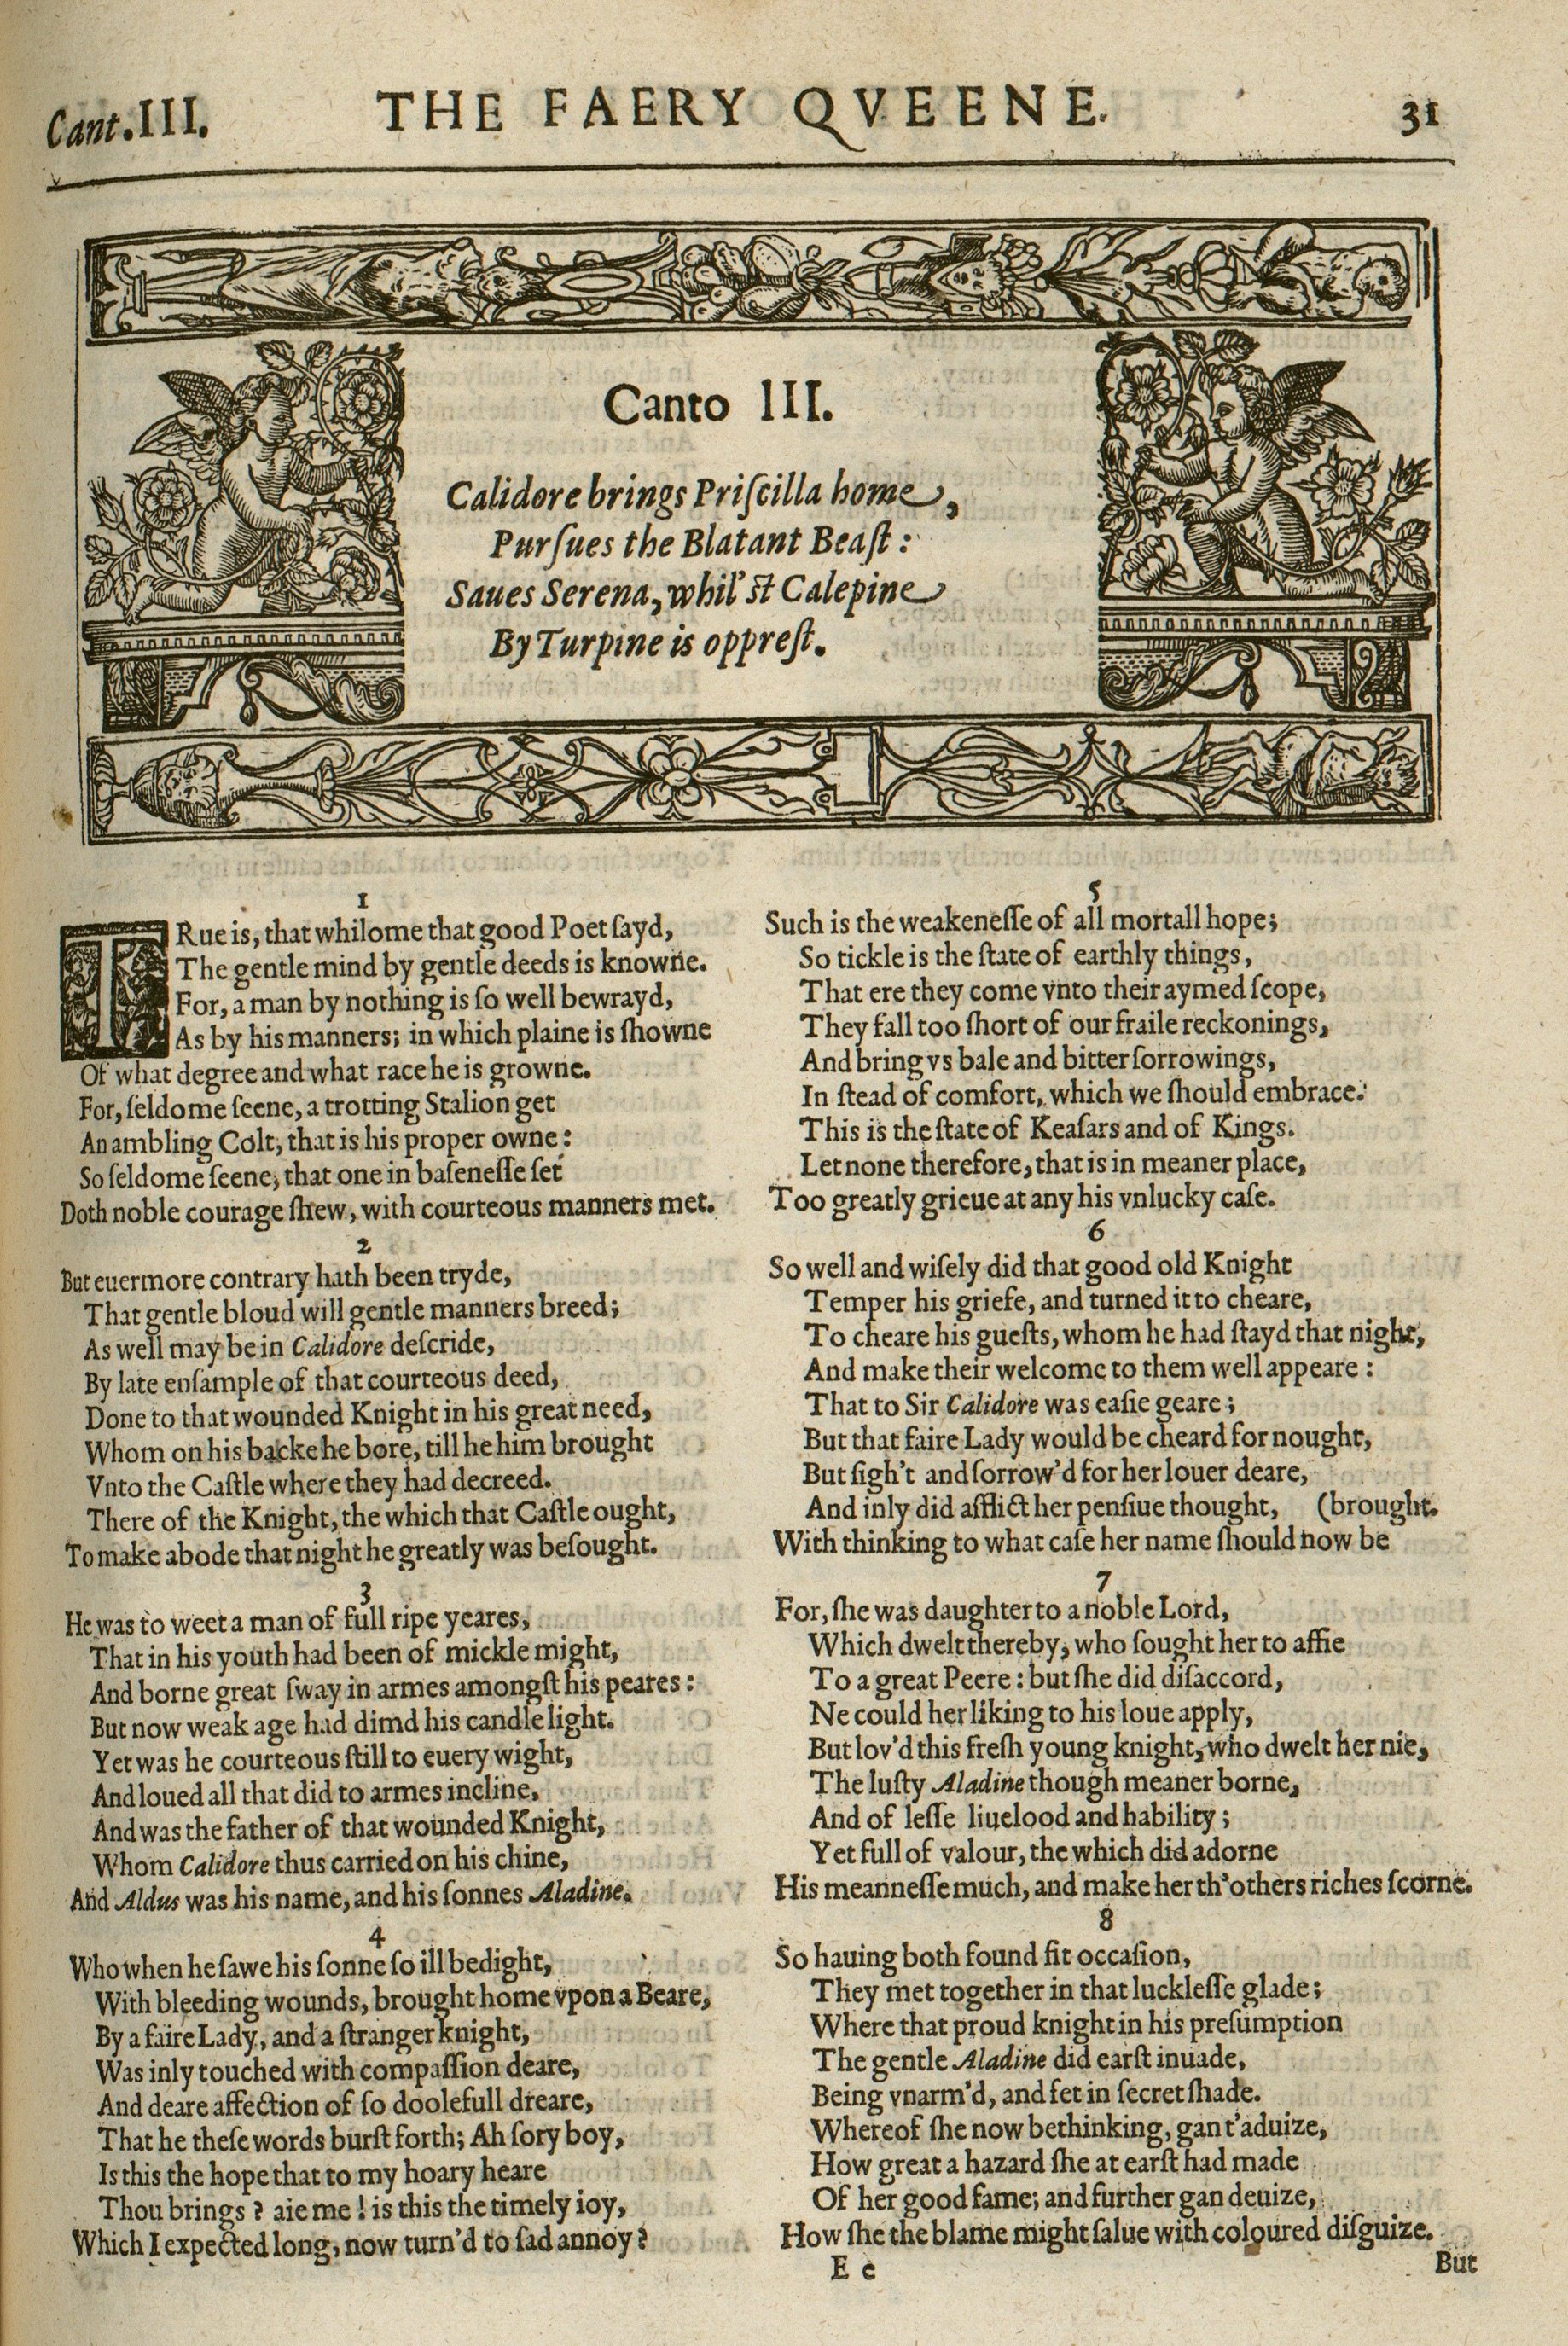 Cant.III. THE FAERY QVEENE. 31
Canto III.
Calidore brings Priſcilla home,
Purſues the Blatant Beaſt:
Saues Serena, whil'ſt Calepine
By Turpine is oppreſt.
1
TRue is, that whilome that good Poet ſayd,
The gentle mind by gentle deeds is knowne.
For, a man by nothing is ſo well bewrayd,
As by his manners; in which plaine is ſhowne
Of what degree and what race he is growne.
For, ſeldome ſeene, a trotting Stalion get
An ambling Colt, that is his proper owne:
So ſeldome ſeene, that one in baſeneſſe ſet
Doth noble courage ſhew, with courteous manners met.
2
But euermore contrary hath been tryde,
That gentle bloud will gentle manners breed;
As well may be in Calidore deſcride,
By late enſample of that courteous deed,
Done to that wounded Knight in his great need,
Whom on his backe he bore, till he him brought
Vnto the Caſtle where they had decreed.
There of the Knight, the which that Caſtle ought,
To make abode that night he greatly was beſought.
3
He was to weet a man of full ripe yeares,
That in his youth had been of mickle might,
And borne great ſway in armes amongſt his peares:
But now weak age had dimd his candle light.
Yet was he courteous ſtill to euery wight,
And loued all that did to armes incline,
And was the father of that wounded Knight,
Whom Calidore thus carried on his chine,
And Aldus was his name, and his ſonnes Aladine.
4
Who when he ſawe his ſonne ſo ill bedight,
With bleeding wounds, brought home vpon a Beare,
By a faire Lady, and a ſtranger knight,
Was inly touched with compaſſion deare,
And deare affection of ſo doolefull dreare,
That he theſe words burſt forth; Ah ſory boy,
Is this the hope that to my hoary heare
Thou brings? aie me! is this the timely ioy,
Which I expected long, now turn'd to ſad annoy?
5
Such is the weakeneſſe of all mortall hope;
So tickle is the ſtate of earthly things,
That ere they come vnto their aymed ſcope,
They fall too ſhort of our fraile reckonings,
And bring vs bale and bitter ſorrowings,
In ſtead of comfort, which we ſhould embrace:
This is the ſtate of Keaſars and of Kings.
Let none therefore, that is in meaner place,
Too greatly grieue at any his vnlucky caſe.
6
So well and wiſely did that good old Knight
Temper his griefe, and turned it to cheare,
To cheare his gueſts, whom he had ſtayd that night,
And make their welcome to them well appeare:
That to Sir Calidore was eaſie geare;
But that faire Lady would be cheard for nought,
But ſigh't and ſorrow'd for her louer deare,
And inly did afflict her penſiue thought, (brought.
With thinking to what caſe her name ſhould now be
7
For, ſhe was daughter to a noble Lord,
Which dwelt thereby, who ſought her to affie
To a great Peere: but ſhe did diſaccord,
Ne could her liking to his loue apply,
But lov'd this freſh young knight, who dwelt her nie,
The luſty Aladine though meaner borne,
And of leſſe liuelood and hability;
Yet full of valour, the which did adorne
His meanneſſe much, and make her th'others riches ſcorne.
8
So hauing both found fit occaſion,
They met together in that luckleſſe glade;
Where that proud knight in his preſumption
The gentle Aladine did earſt inuade,
Being vnarm'd, and ſet in ſecret ſhade.
Whereof ſhe now bethinking, gan t'aduize,
How great a hazard ſhe at earſt had made
Of her good fame; and further gan deuize,
How ſhe the blame might ſalue with coloured diſguize.
E e But